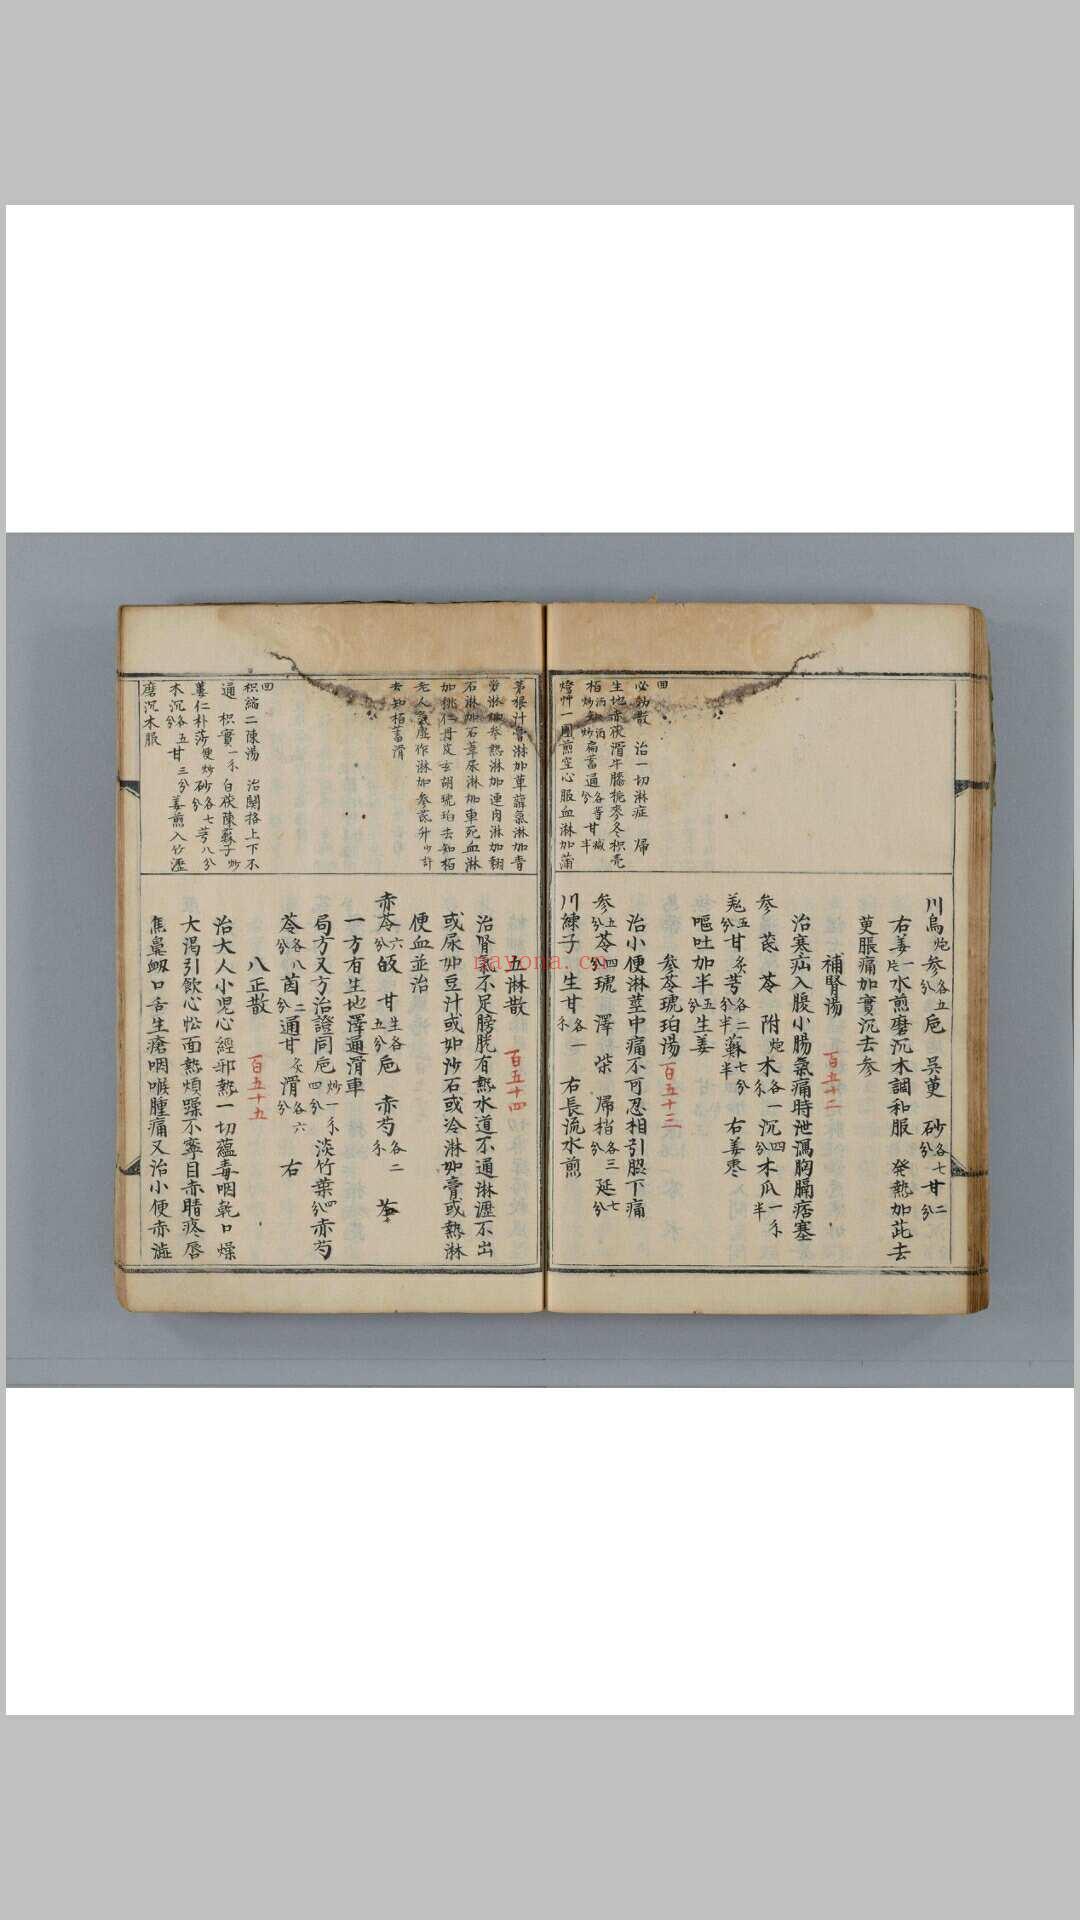 川烏炮參各五分 巵 吳茰 砂各七分 甘二分
右姜一片水煎磨沉木調和服 発熱加茈去
茰脹痛加實沉去參
補腎湯 百五十二
治寒疝入腹小腸氣痛時泄瀉胸膈痞塞
參 芪 苓 附炮 木各一 沉四分 木瓜一 半
羗五分 甘炙 芎各二分半 蘇七分半 右姜枣
嘔吐加半五分 生姜
參苓琥珀湯 百五十三
治小便淋莖中痛不可忍相引脇下痛
參五分 苓四分 琥 澤 柴 歸梢各三分 延七分
川練子 生甘各一 右長流水煎
四
必効散 治一切淋症 歸
生地赤茯滑牛膝梔麥冬枳売
栢酒炒知酒炒萹蓄通各等分甘减半
燈艸一團煎空心服血淋加蒲
五淋散 百五十四
治腎氣不足膀胱有熱水道不通淋瀝不出
或尿如豆汁或如沙石或冷淋如膏或熱淋
便血並治
赤苓六分 皈 甘生各五分 巵 赤芍各二
一方有生地澤通滑車
局方又方治證同巵炒一 四分 淡竹葉四分 赤芍
苓各八分 茵二分 通甘炙 滑各六分 右
八正散 百五十五
治大人小児心經邪熱一切蘊毒咽乾口燥
大渴引飲心忪面熱煩躁不寧目赤睛疼唇
焦鼻衂口舌生瘡咽喉腫痛又治小便赤澁
茅根汁膏淋加萆薢氣淋加青
勞淋加參熱淋加連肉淋加翹
石淋加石葦尿淋加車死血淋
加桃仁丹皮玄胡琥珀去知栢
老人氣虛作淋加參芪升少許
去知栢蓄滑
四
枳縮二陳湯 治関格上下不
通 枳實一 白茯陳蘇子炒
蔞仁朴莎便炒砂各七分芎八分
木沉各五分甘三分姜煎入竹瀝
磨沉木服
nayona.cn